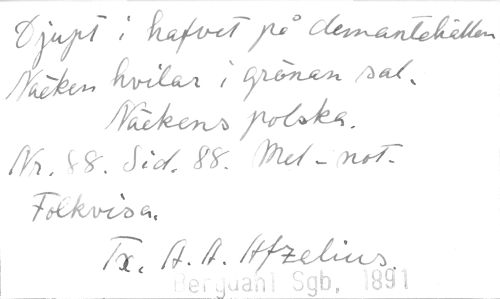 Djupt i hafvet på demantehällen
Näcken hvilar i grönan sal.
Näckens polska.
Nr. 88. Sid. 88. Mel-not.
Folkvisa.
Tx. A. A. Afzelius.
Bergdahl Sgb, 1891